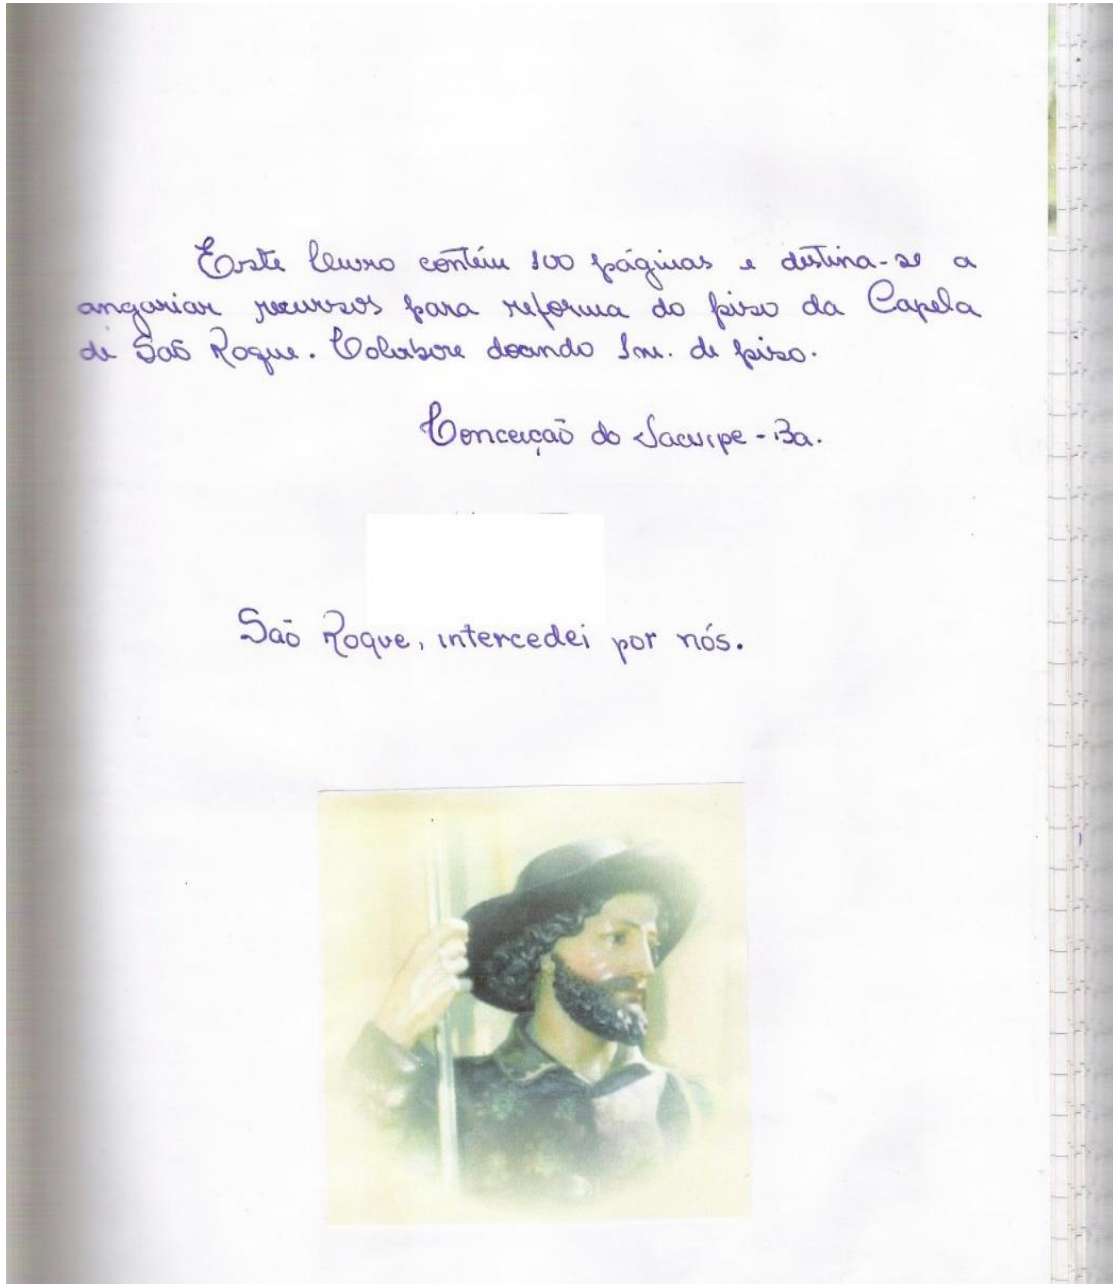 Este livro contém 100 páginas e destina-se a
angariar recursos para reforma do piso da Capela
de São Roque. Colabore doando 1m. de piso.
Conceição do Jacuípe-Ba.
São Roque, intercedei por nós.